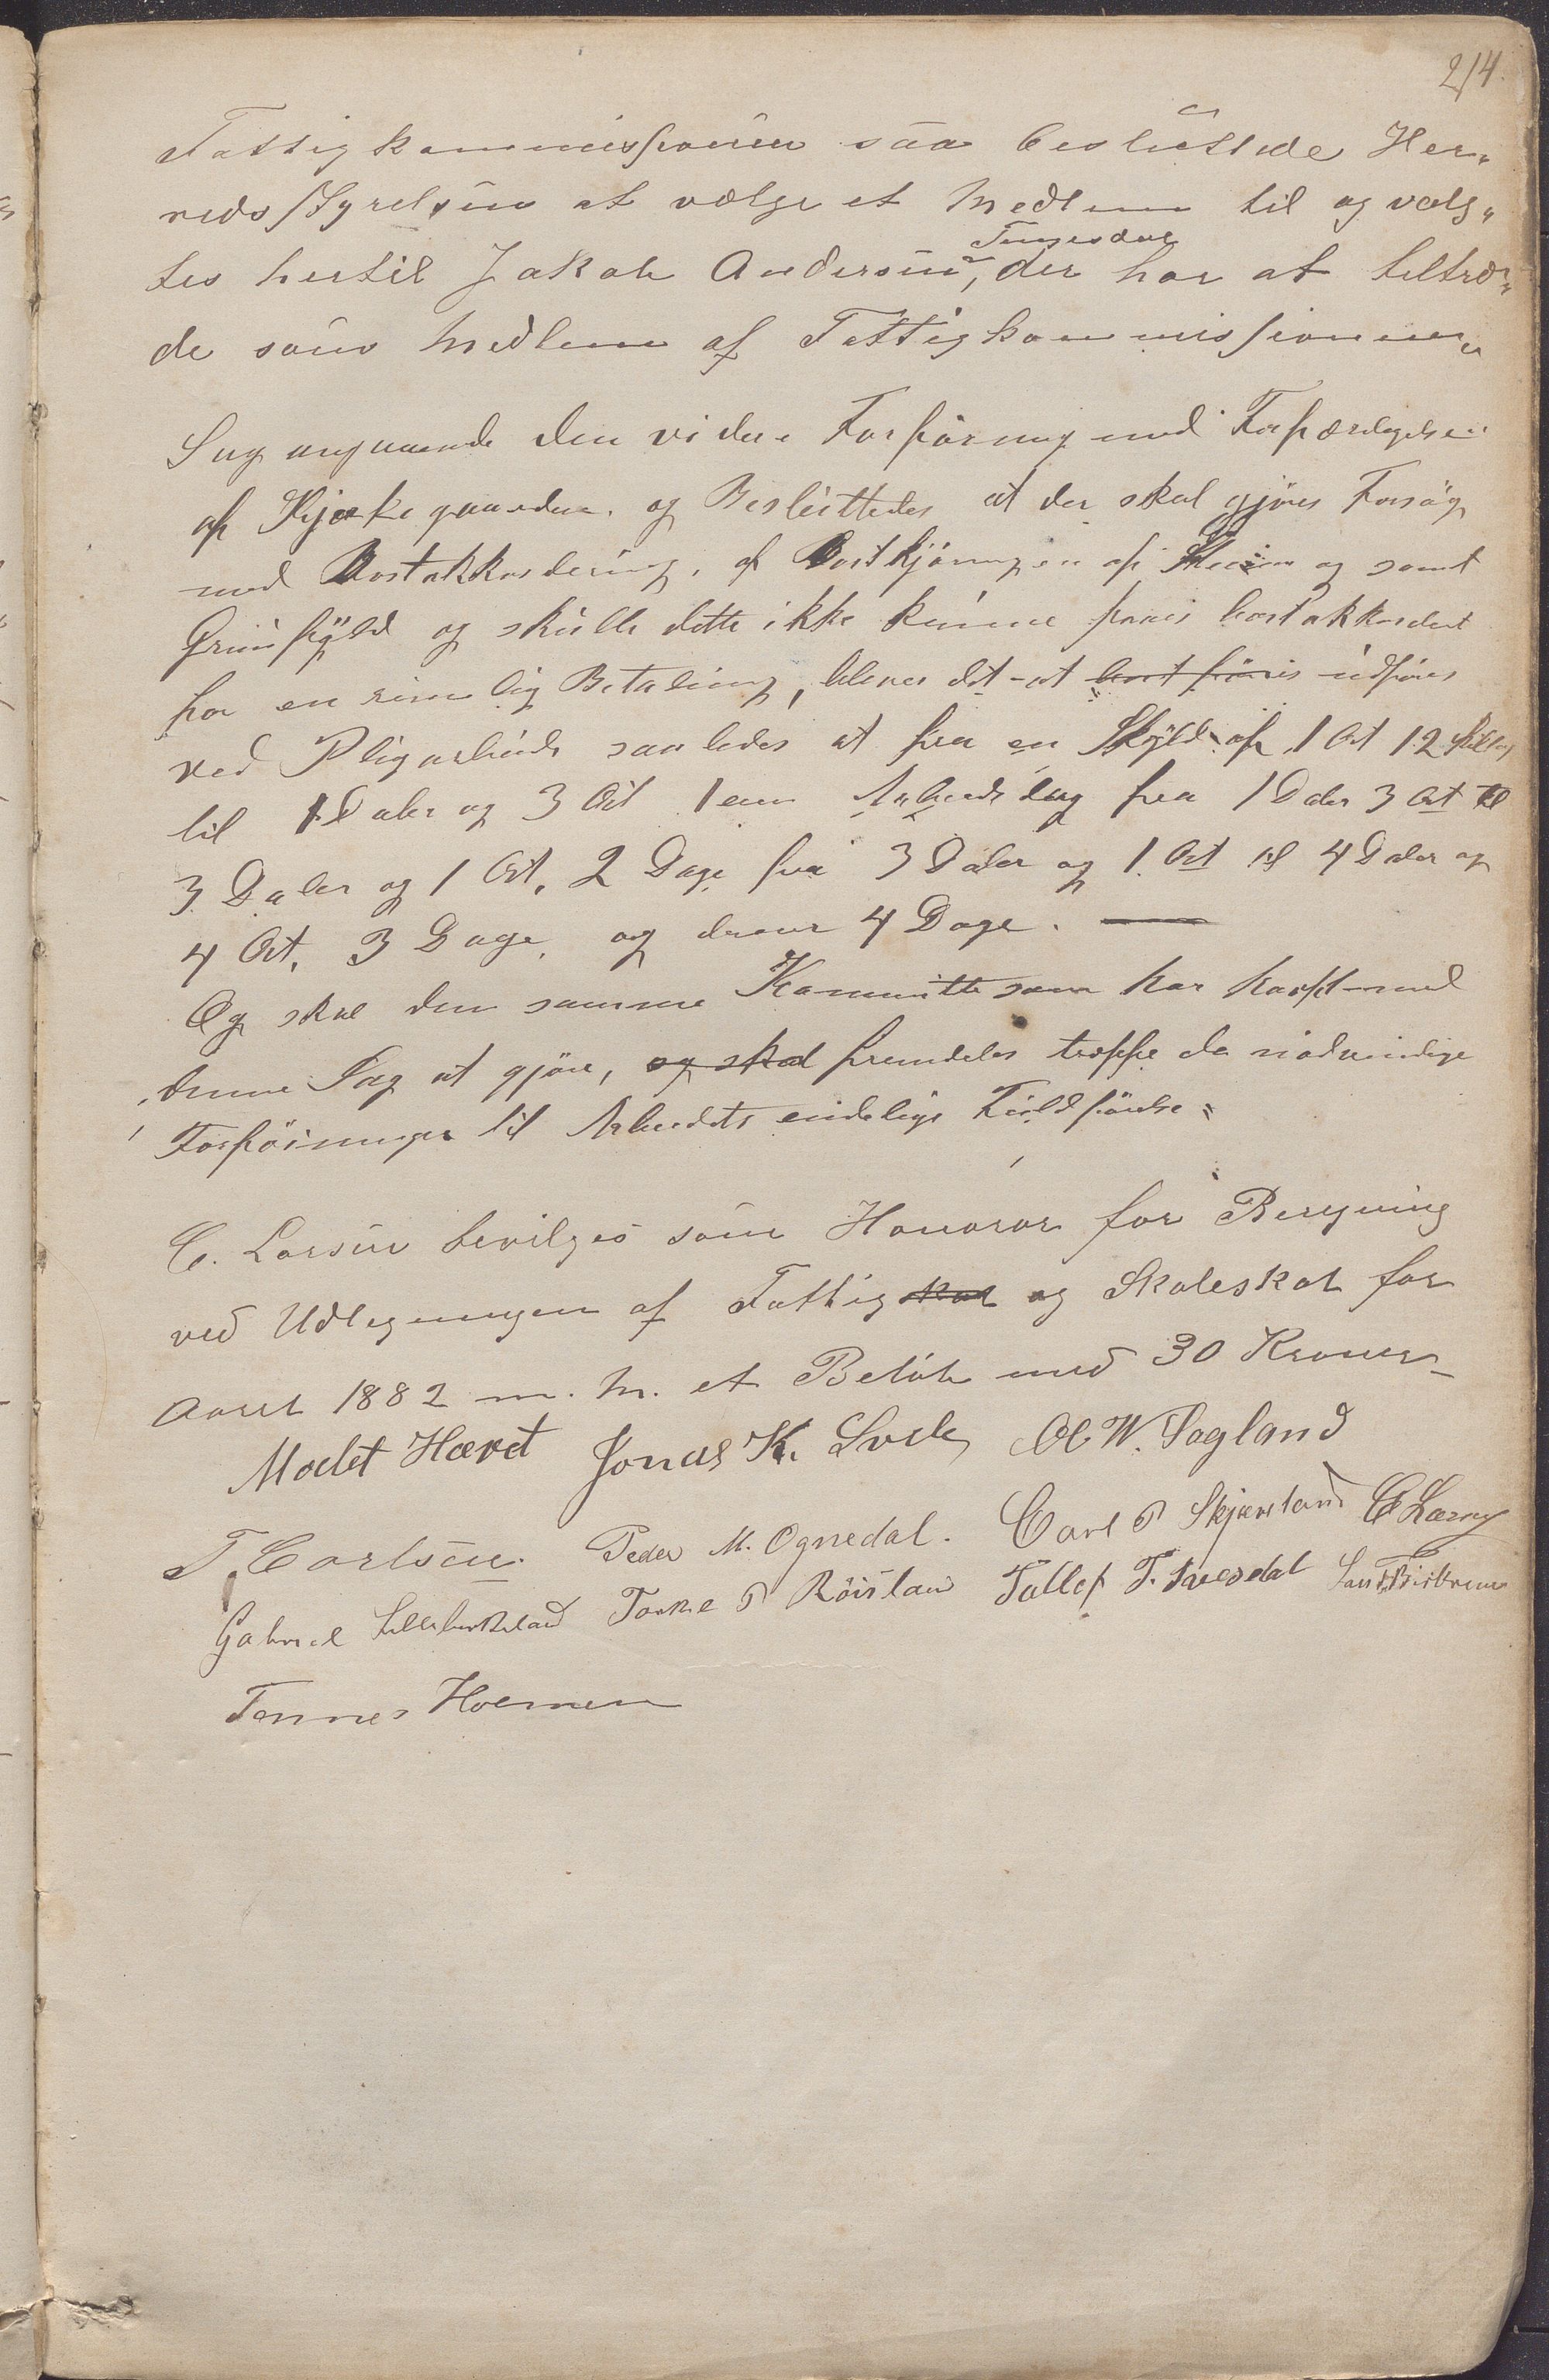 214.
Fattigkommissionen saa besluttede Her„
redsstyrelsen at vælge et Medlem til og valg„
Tengesdal
tes hertil Jakob Andersen, der har at tiltræ„
de som Medlem af Fattigkommissionen„
Sag angaaende den videre Forføining med Forfærdigelsen
af Kjerkegaarden. og Besluttedes at der skal gjøres Forsøg
med Bortakkordering, af Bortkjøringen af Steien og samt
Grunfyld og skulle dette ikke kunne faaes bortakkordert
for en rimelig Betaling, bliver det at bortføres udføres
ved Pligarbeide saaledes at fra en Skyld af 1 Ort 12 skilling
til 1 Daler og 3 Ort 1 een Arbeidsdag fra 1 Daler 3 Ort til
3 Daler og 1 Ort, 2 Dage fra 3 Daler og 1 Ort til 4 Daler og
4 Ort, 3 Dage, og derover 4 Dage. —
Og skal den samme Kommitte som har havt med
denne Sag at gjøre, og skal fremdeles træffe de nødvendige
Forføininger til Arbeidets endelige Fuldførelse„
C. Larsen bevilges som Honorar for Beregning
ved Udlegningen af Fattig skat og Skoleskat for
Aaret 1882 m. m. et Beløb med 30 Kroner
Modet Haavet Jonas K. Lvsle Ol W. Sagland
T. Carlsen. Peder M. Ognedal. Carl P Skjæveland C Larsen
Gabriel Lilleberkeland Torkel P Röisland Tollef T. Taxesdal
Tønnes Holmen